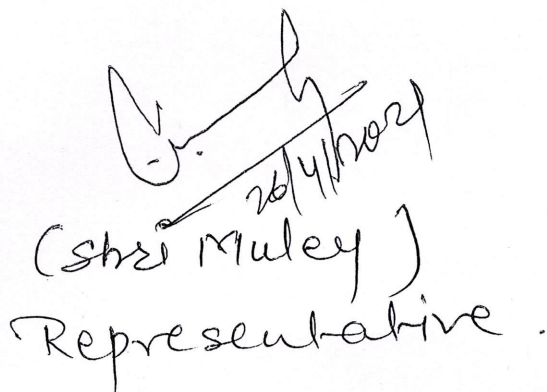 26/4/2021
(Shri Muley)
Representative.